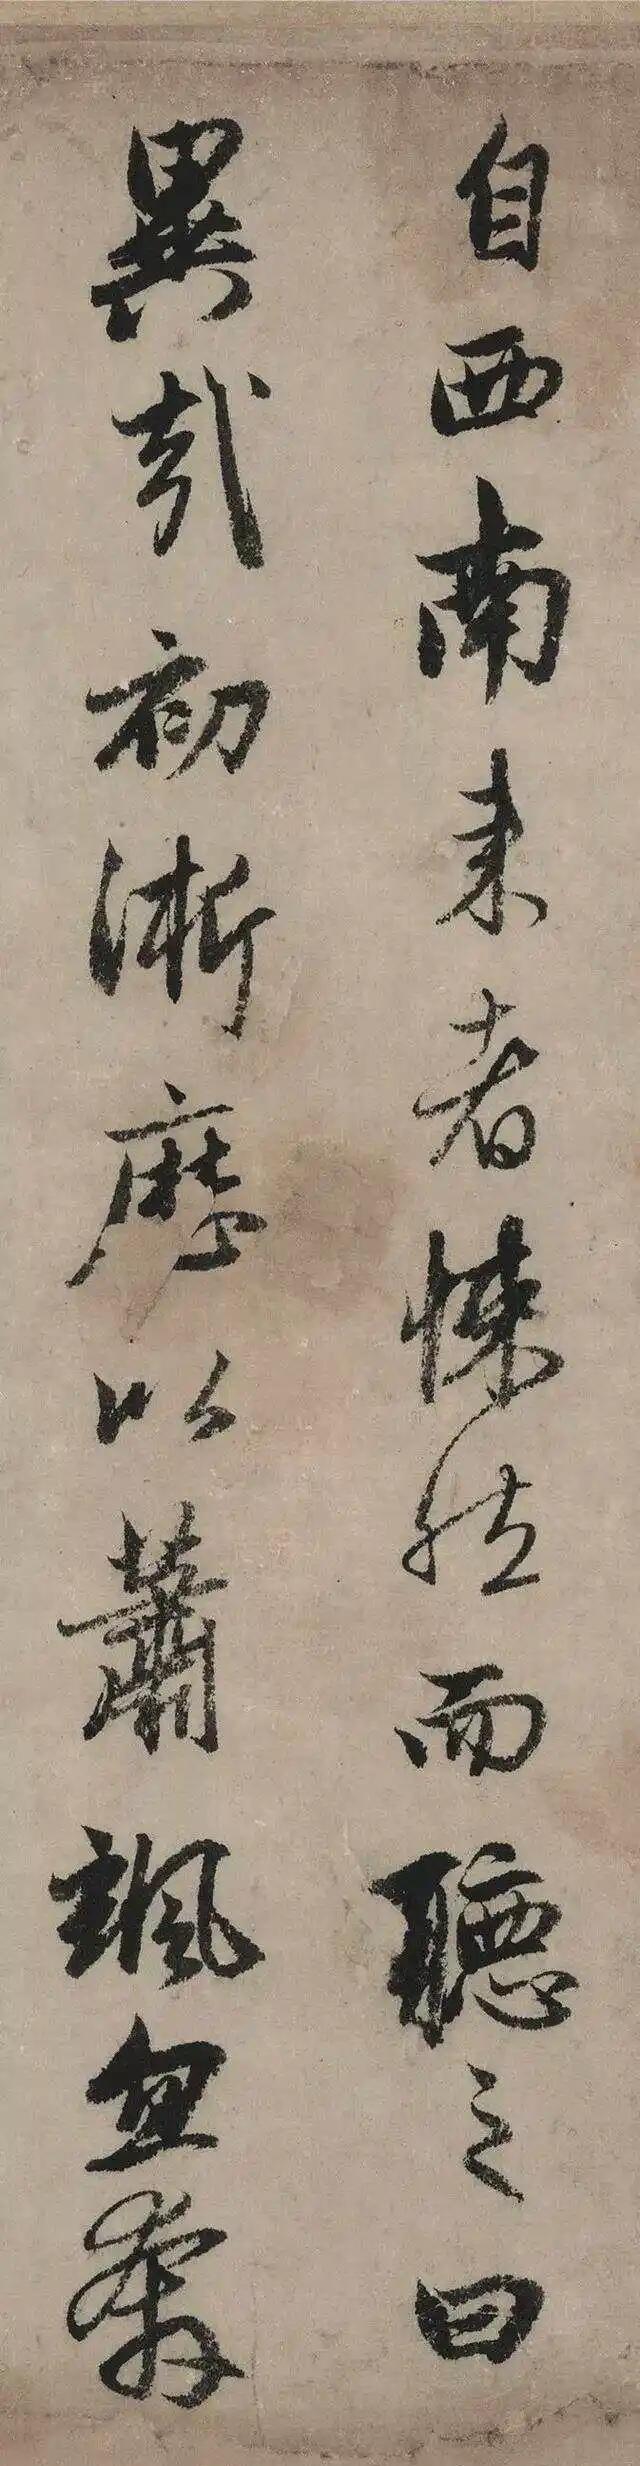 自西南来者悚然而聽之曰
異哉初淅歷以蕭颯忽奔